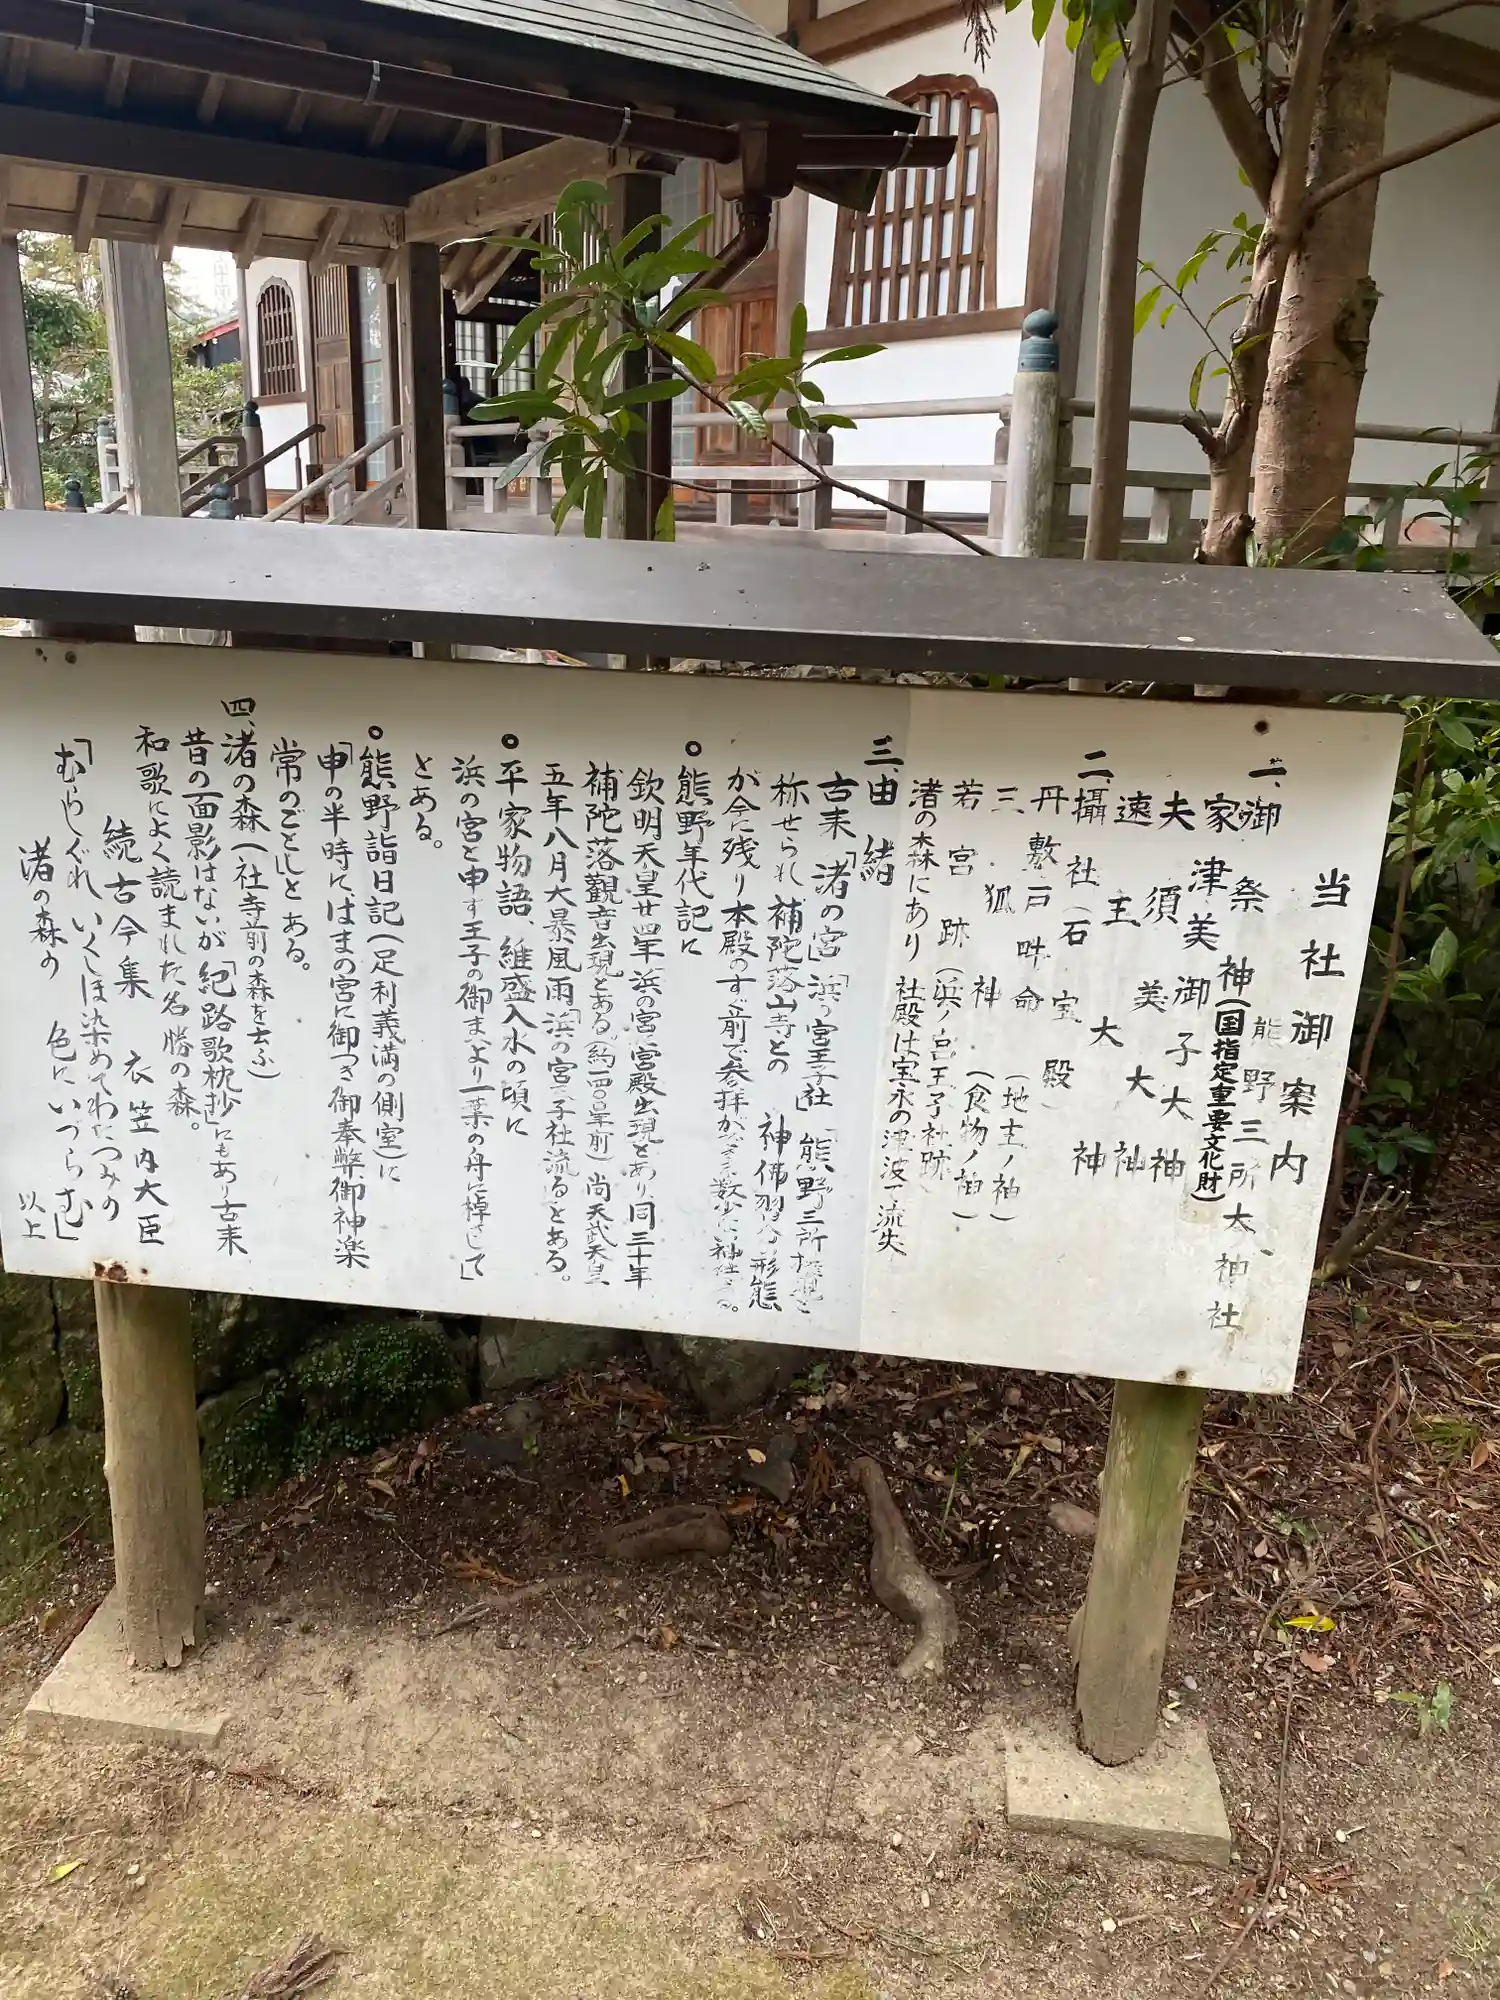 当社御案内
熊野三所大神社
一、御祭神(国指定重要文化財)
家津美御子大神
夫須美大神
速主大神
二、攝社(石宝殿)
丹敷戸畔命(地主ノ神)
三狐神(食物ノ神)
若宮跡(浜ノ宮王子社跡)
渚の森にあり 社殿は宝永の津波で流失
三、由緒
古来「渚の宮」「浜の宮王子社」「熊野三所権現」と
称せられ補陀落山寺との 神佛習合の形態
が今に残り本殿のすぐ前で参拝ができる数少い神社
熊野年代記に
欽明天皇廿四年浜の宮、宮殿出現とあり同三十年
補陀落観音出現とある。(約一四〇〇年前)尚天武天皇
五年八月大暴風雨「浜の宮王子社流るとある。
平家物語、維盛入水の頃に
浜の宮と申す王子の御まえより一葉の舟に棹さして」
とある。
熊野詣日記(足利義満の側室)に
「申の半時に、はまの宮に御つき御奉弊御神楽
常のごとし」とある。
四、渚の森(社寺前の森を云ふ)
昔の面影はないが「紀路歌枕抄」にもあり古来
和歌によく読まれた名勝の森。
続古今集 衣笠内大臣
「むらしぐれいくしほ染めてわたつみの
渚の森の 色にいづらむ」
以上